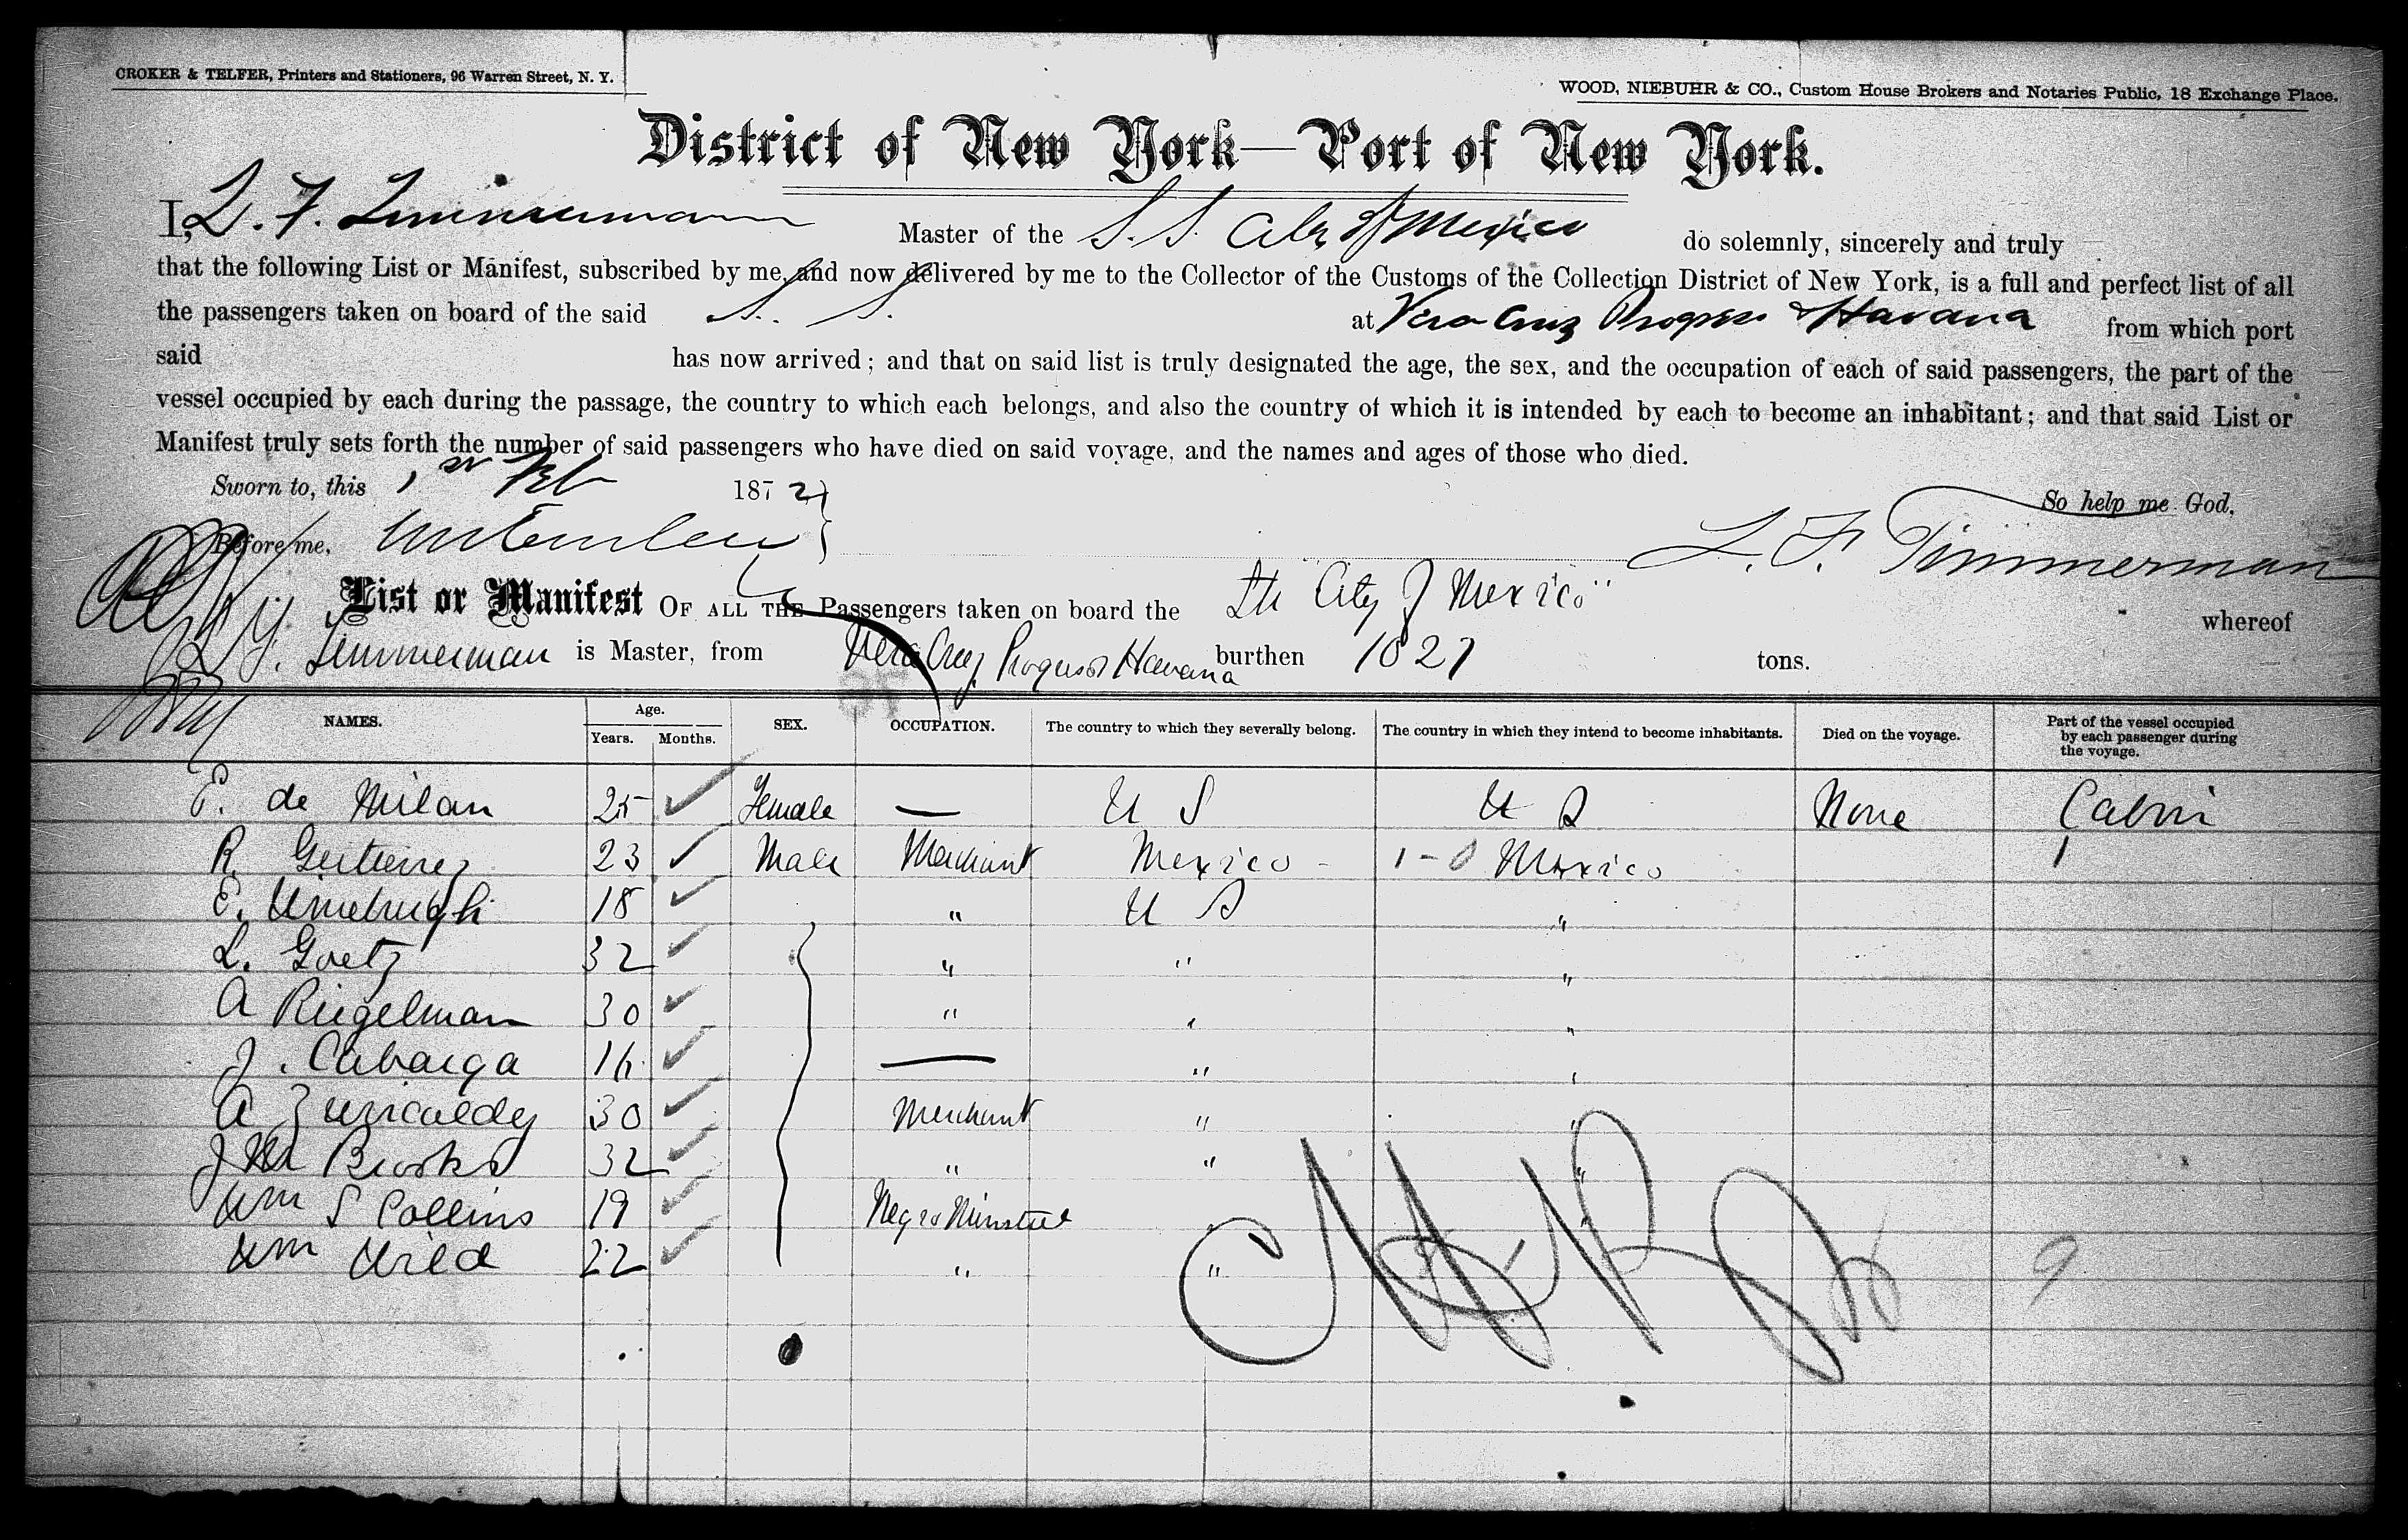 CROKER & TELFER, Printers and Stationers, 96 Warren Street, N. Y.
WOOD, NIEBUHR & CO., Custom House Brokers and Notaries Public, 18 Exchange Place.
District of New York—Port of New York.
I, L. F. Timmermann Master of the S. S. City of Mexico do solemnly, sincerely and truly
that the following List or Manifest, subscribed by me, and now delivered by me to the Collector of the Customs of the Collection District of New York, is a full and perfect list of all
the passengers taken on board of the said S. S. at Vera Cruz Progreso & Havana from which port
said has now arrived; and that on said list is truly designated the age, the sex, and the occupation of each of said passengers, the part of the
vessel occupied by each during the passage, the country to which each belongs, and also the country of which it is intended by each to become an inhabitant; and that said List or
Manifest truly sets forth the number of said passengers who have died on said voyage, and the names and ages of those who died.
Sworn to, this 1st Feb 1872 So help me God,
Before me, L. F. Timmerman
List or Manifest OF ALL THE Passengers taken on board the Str City of Mexico whereof
L F. Timmerman is Master, from Vera Cruz, Progreso & Havana burthen 1027 tons.
NAMES. Age. Years. Months. SEX. OCCUPATION. The country to which they severally belong. The country in which they intend to become inhabitants. Died on the voyage. Part of the vessel occupied by each passenger during the voyage.
E. de Milan 25 Female — U S U S None Cabin
R. Gutierrez 23 Male Merchant Mexico - 1-0 Mexico
E. 18 " U S "
L. Goetz 32 " " "
A Riegelman 30 " " "
J. Cabarga 16 — " "
A 30 Merchant " "
J M Brooks 32 " " "
Wm S Collins 19 Negro Minstrel " "
Wm Wild 22 " "
9